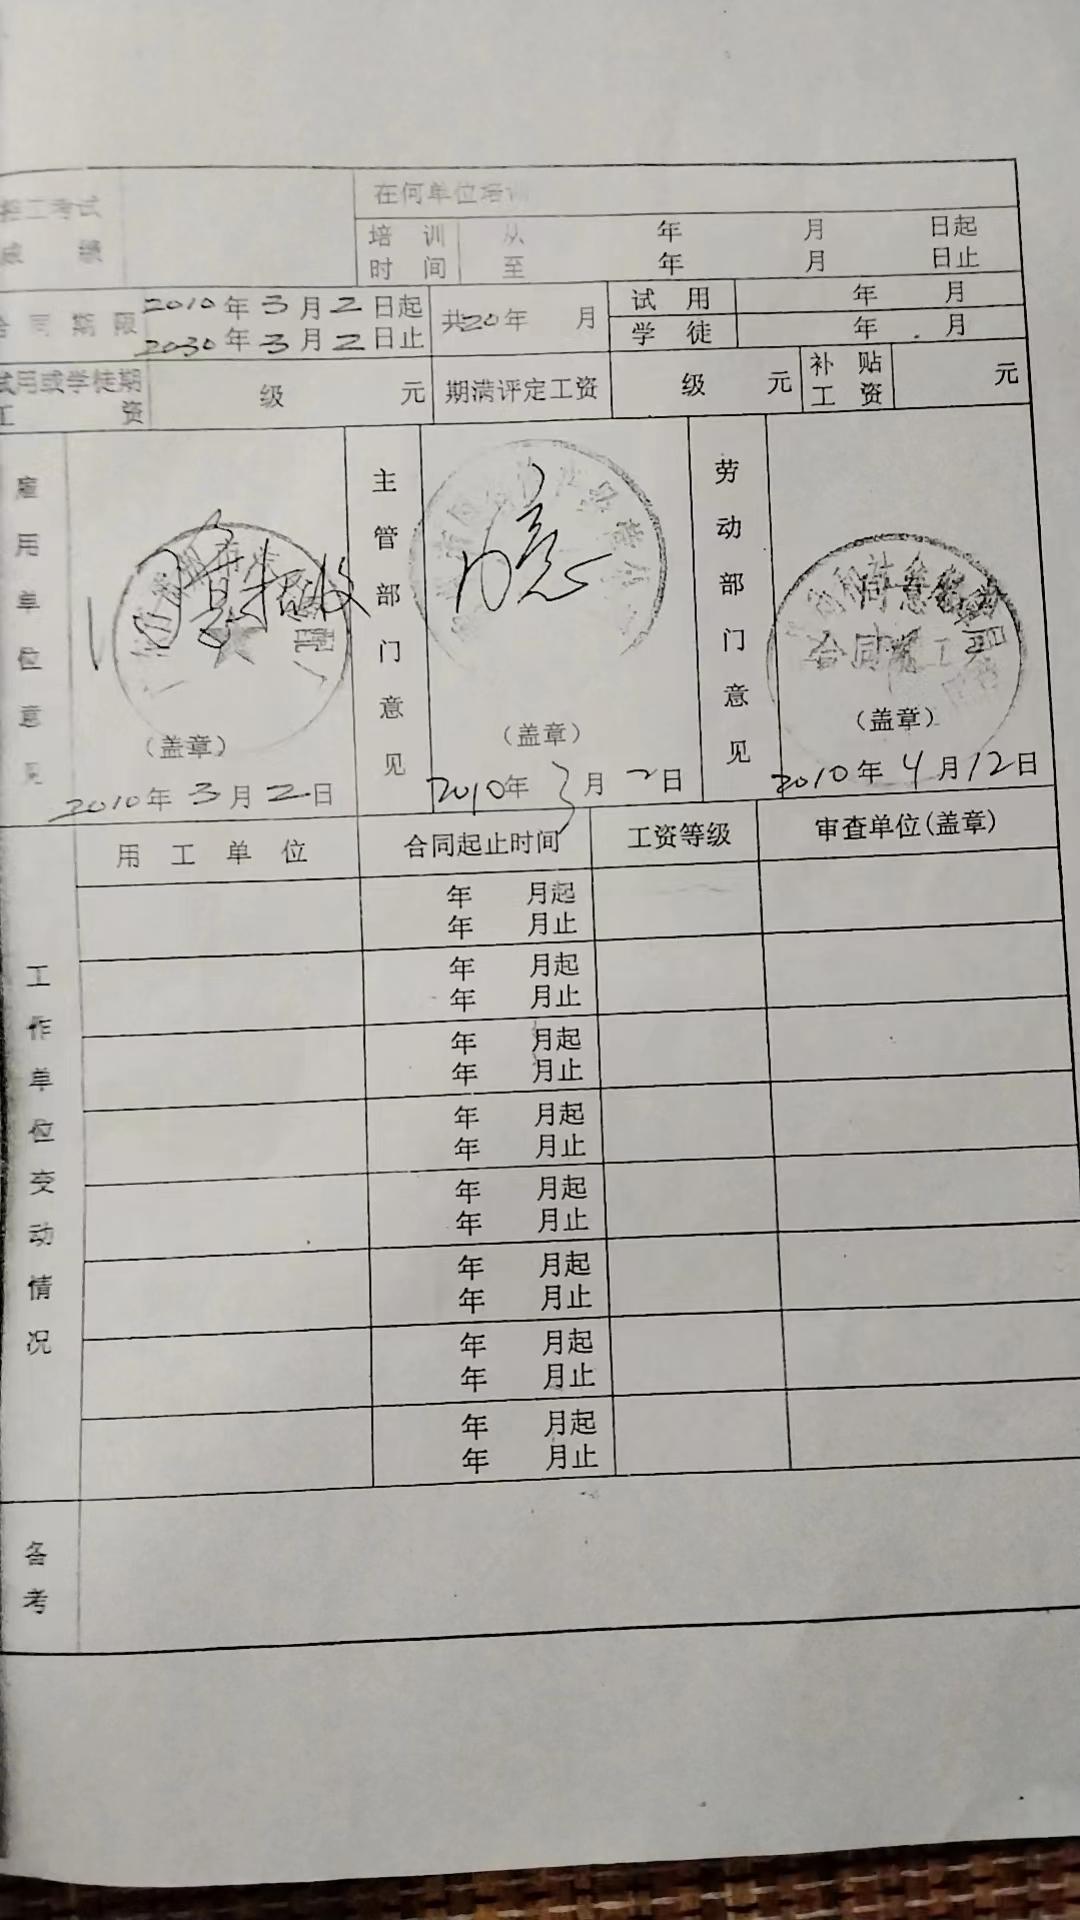 招工考试
成 绩
在何单位培训
培 训
时 间
从 年 月 日起
至 年 月 日止
合同期限
2010年3月2日起
2030年3月2日止
共20年 月
试 用 年 月
学 徒 年 月
试用或学徒期
工 资
级 元
期满评定工资
级 元
补 贴
工 资
元
雇用单位意见
同意招收
(盖章)
2010年3月2日
主管部门意见
同意
(盖章)
2010年3月2日
劳动部门意见
同意
合同 工
(盖章)
2010年4月12日
工作单位变动情况
用 工 单 位
合同起止时间
工资等级
审查单位(盖章)
年 月起
年 月止
年 月起
年 月止
年 月起
年 月止
年 月起
年 月止
年 月起
年 月止
年 月起
年 月止
年 月起
年 月止
年 月起
年 月止
备考